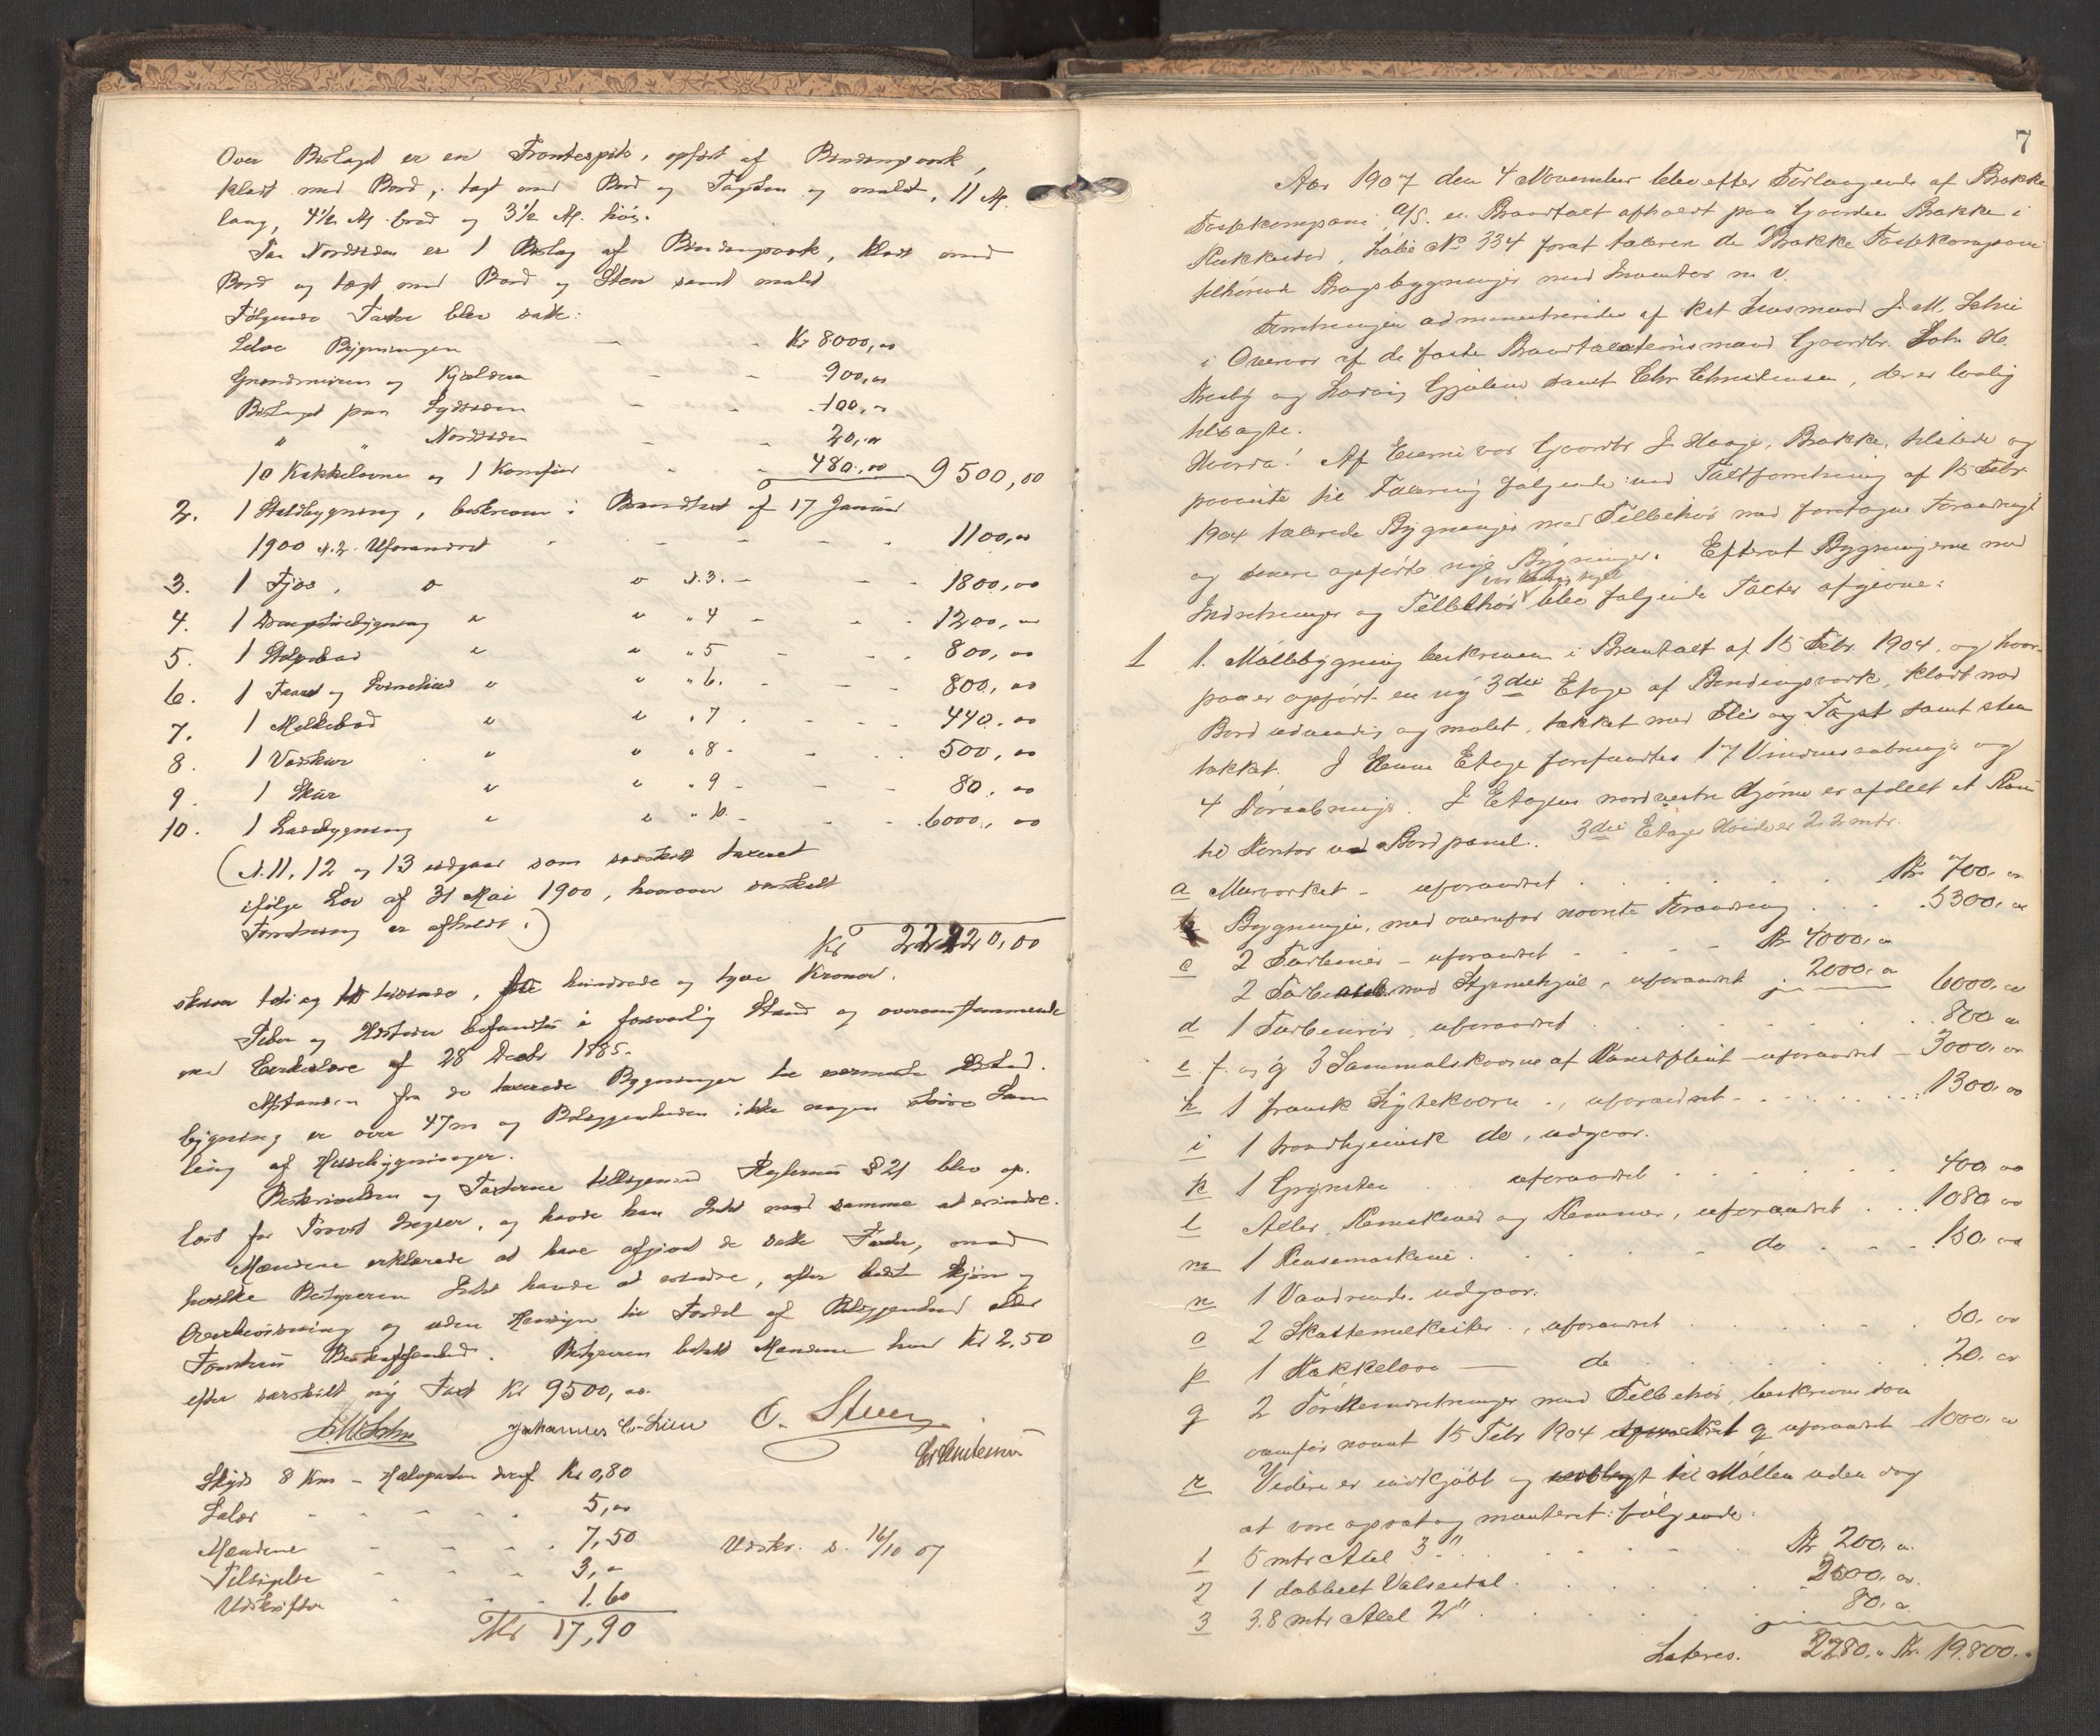 Over Bislaget er en Frontespits, opført af Bindingsverk,
klædt med Bord, tagt med Bord og Tagsten og malet, 11 M.
lang, 4½ M. bred og 3½ M. høi.
Paa Nordsiden er 1 Bislag af Bindingsverk, klædt med
Bord og tægt med Bord og Sten samt malet
Følgende Taxter blev satte:
Selve Bygningen - - Kr 8000,00
Grundmuren og Kjælderen - - 900,00
Bislaget paa Sydsiden - - 100,00
" " Nordsiden - - 20,00
10 Kakkelovne og 1 Komfur - - 480,00 9500,00
2. 1 Staldbygning, beskreven i Brandtaxt af 17 Januar
1900 N. 2. Uforandret - - - - - 1100,00
3. 1 Fjøs, " " N. 3. - - - 1800,00
4. 1 bygning " " " 4 - - - 1200,00
5. 1 Stolpebod " " " 5 - - - 800,00
6. 1 og Svinehus " " " 6. - - - 800,00
7. 1 Melkebod " " " 7. - - - 440,00
8. 1 Vedskur " " " 8 - - - 500,00
9. 1 Skur " " " 9 - - - 80,00
10. 1 Ladebygning " " " 10. - - - 6000,00
(N. 11, 12 og 13 udgaar som særskilt taxeret
ifølge Lov af 31 Mai 1900, hvorover særskilt
Forretning er afholdt.)
Kr 22220,00
skriver toti og to tusinde, to hundrede og tyve Kroner.
Piber og Ildsteder befandtes i forsvarlig Stand og overensstemmende
med Cirkulære af 28 Decbr 1885.
Afstanden fra de taxerede Bygninger til nærmeste Ildsted.
bygning er over 47m og Beliggenheden ikke nogen større Sam
ling af Husebygninger.
Beskrivelsen og Taxterne tillige med Reglernes § 21 blev op-
læst for Provst, og havde han Intet med samme at erindre.
Mændene erklærede at have afgivet de satte Taxter, mod
hvilke Bestyreren Intet havde at erindre, efter bedste Skjøn og
Overbevisning og uden Hensyn til Fordel af Beliggenhed eller
Tomtens Beskaffenhed. Bestyreren betalte Mændene hver Kr 2,50
efter særskilt ny Taxt Kr 9500,00.
J.M. Lehn Johannes C. Lien O. Steen
Chr Christensen
Skyds 8 Km - Halvparten deraf Kr 0,80
Salær - - - - 5,00
Mændene - - - - 7,50
Tilsigelse - - - 3,00
Udskrifter - - 1.60
Udskr. d. 16/10 07
Kr 17,90
7
Aar 1907 den 4 November blev efter Forlangende af Brække
Fossekompani A/S. en Brandtaxt afholdt paa Gaarden Brække i
Rakkestad, Løbe No 334 forat taxere de Brække Fossekompani
tilhørende Brugsbygninger med Inventar m. v.
Forretningen administreredes af kst Lensmand J. M. Lehn
i Overvær af de faste Brandtaxationsmænd Gaardbr. Joh. H.
Næsby og Ludvig Gjølme samt Chr Christensen, der er lovlig
tilsagte.
Hvorda! Af Eierne var Gaardbr J Haage, Brække, tilstede og
paaviste til Taxering følgende ved Taxtforretning af 15 Febr
1904 taxerede Bygninger med Tilbehør med foretagne Forandringer
og senere opførte nye Bygninger. Efterat Bygningerne med
Indretninger og Tilbehør var besigtiget blev følgende Taxter afgivne:
1 1. Møllebygning beskreven i Brandtaxt af 15 Febr 1904, og hvor-
paa er opført en ny 3die Etage af Bindingsverk, klædt med
Bord udvendig og malet, tækket med Flis og Tagst samt sten
tækket. I denne Etage forefandtes 17 Vinduesaabninger og
4 Døraabninger. I Etagens nordvestre Hjørne er afdelt et Rum
til Kontor ved Bordpanel. 3die Etages Høide er 2,2 mtr.
a Murverket - uforandret . . . . . . Kr 700,00
b Bygningen, med ovenfor nævnte Forandring . . . 5300,00
c 2 Turbiner - uforandret . . . Kr 4000,00
2 med Stjernehjul, uforandret . 2000,00 6000,00
d 1 Turbinrør, uforandret . . . . . . . 800,00
e. f. og g 3 Sammalskværne af Kunstflint - uforandret - 3000,00
h 1 fransk Sigtekværn ., uforandret - . . . . . 1300,00
i 1 trondhjemsk do, udgaar.
k 1 Grynsten . . uforandret . . . . . 400,00
l Axler, Remskiver og Remmer, uforandret . . . 1080,00
m 1 Rensemaskine . . . . . do . . . . 150,00
n 1 Vandrende. udgaar.
o 2 ., uforandret . . . . . . 50,00
p 1 Kakkelovn — do . . . . . . 20,00
q 2 Tørkeindretninger med Tilbehør, beskreven som
ovenfor nævnt 15 Febr 1904 q uforandret - 1000,00
r Videre er indkjøbt og til Møllen uden dog
at være opsat og monteret: følgende:
1 5 mtr Axel 3" . . . . . . Kr 200,00
2 1 dobbelt Valsestol . . . . . . 2000,00
3 3.8 mtr Axel 2" . . . . . . 80,00
Lateres. 2280,00 Kr. 19.800.